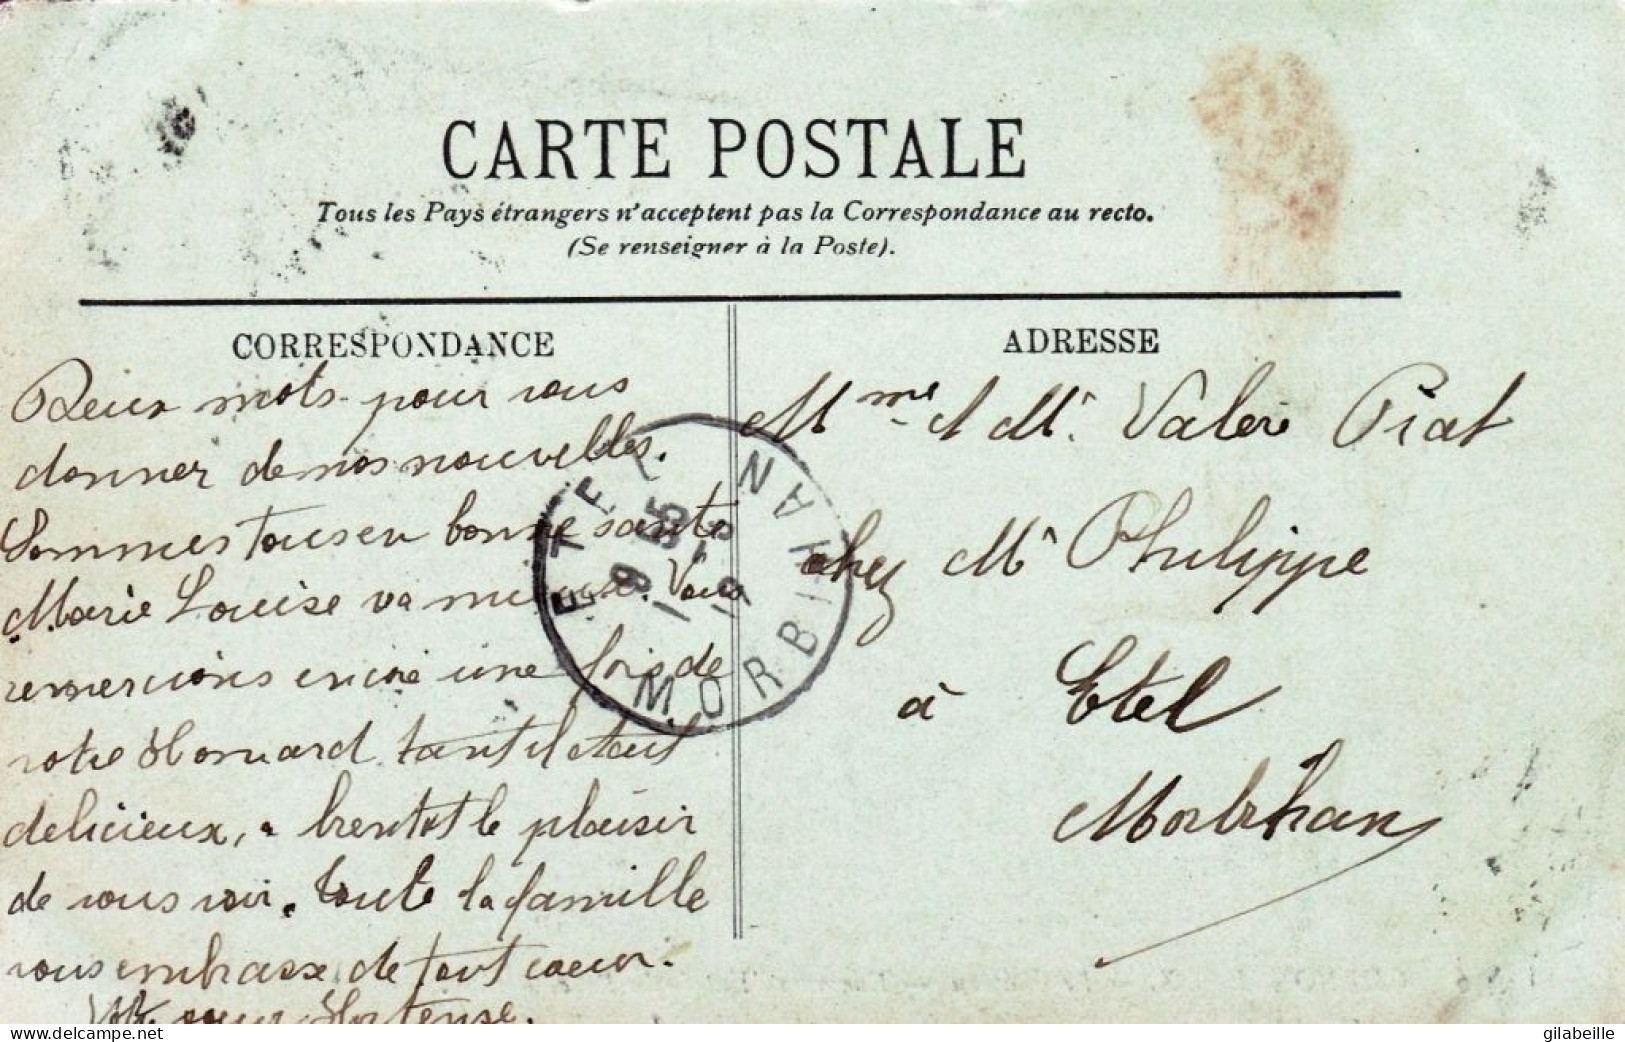 CARTE POSTALE
Tous les Pays étrangers n'acceptent pas la Correspondance au recto.
(Se renseigner à la Poste).
CORRESPONDANCE
Deux mots pour vous
donner de nos nouvelles.
Sommes tous en bonne santé
Marie Louise va mieux. Vous
remercions encore une fois de
votre Homard tant il etait
delicieux, a bientot le plaisir
de vous voir. toute la famille
vous embrasse de tout coeur.
Votre soeur Hortense.
ADRESSE
Mme & Mr. Valère Piat
chez Mr Philippe
à Etel
Morbihan
ETEL
MORBIHAN
www.delcampe.net
gilabeille